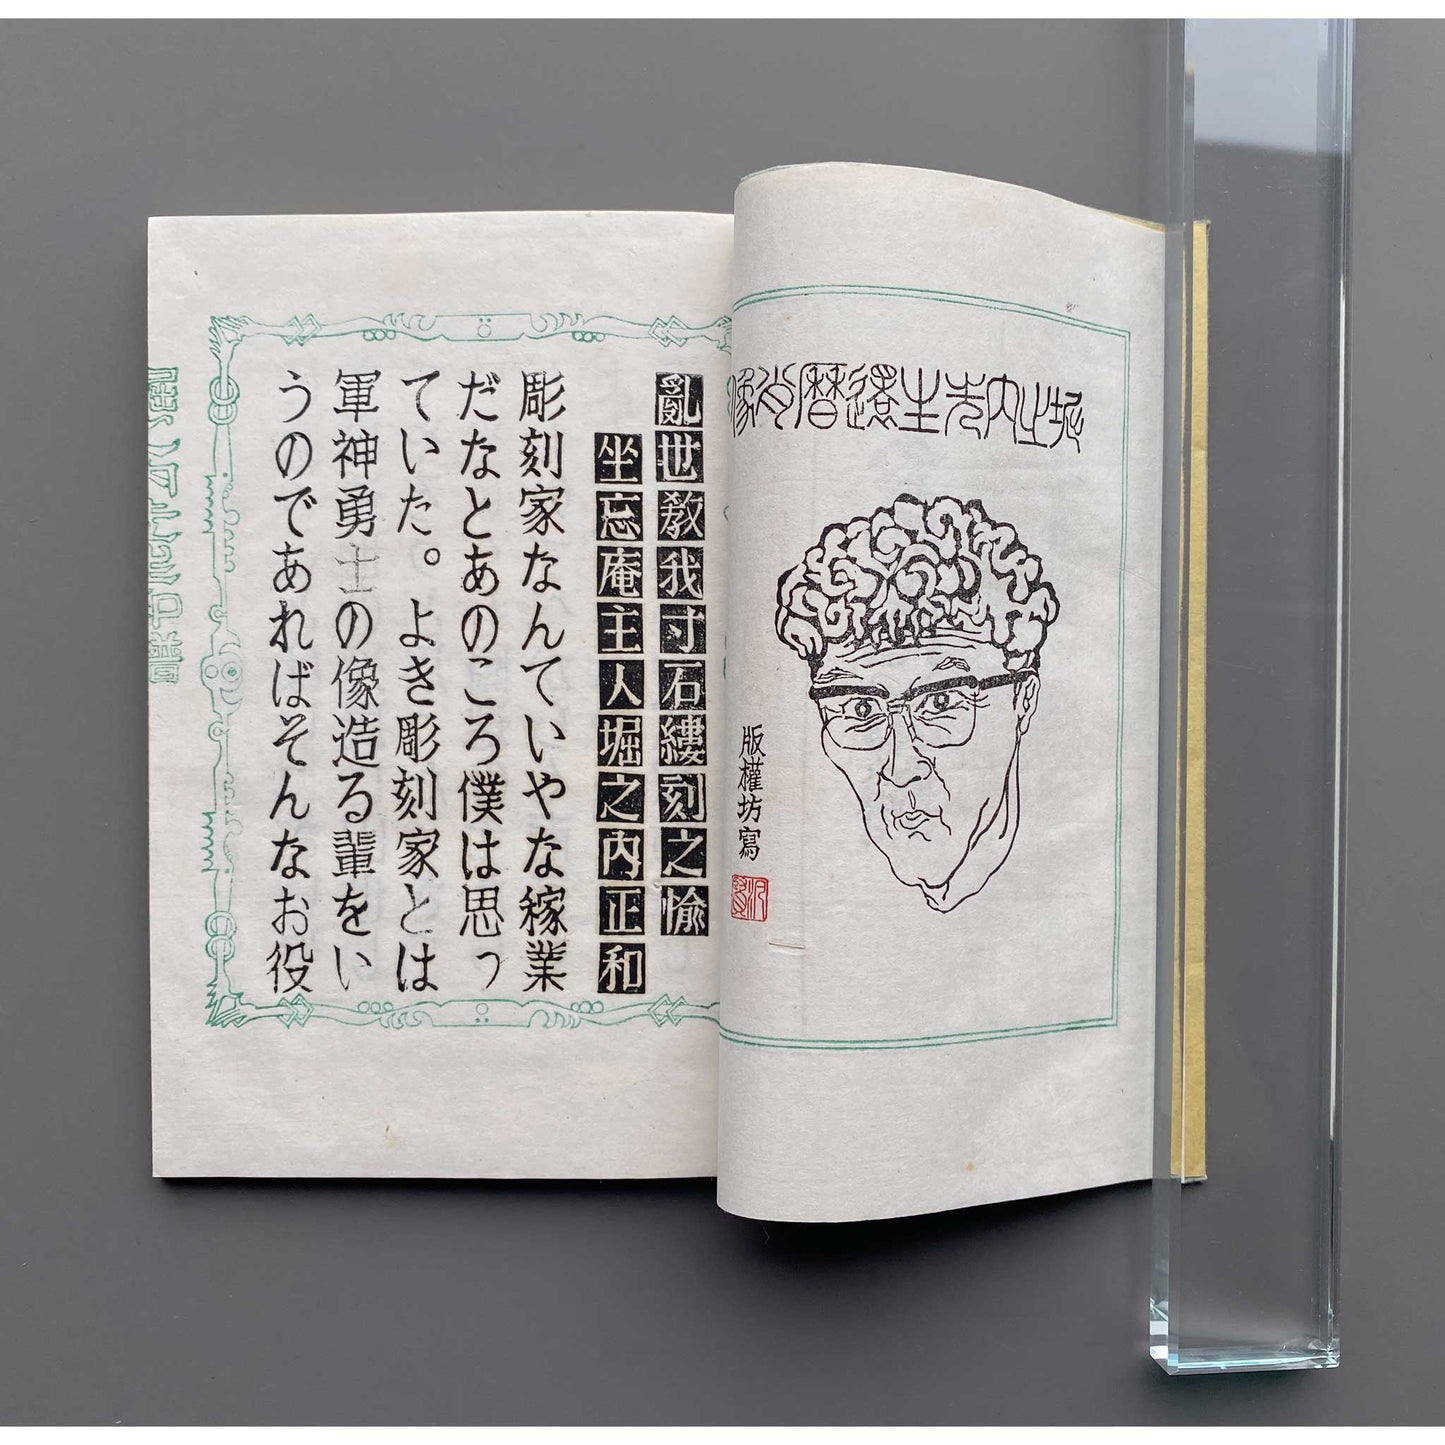 堀之内先生還暦肖像
版權坊寫
亂世教我寸石縷刻之愉
坐忘庵主人堀之內正和
彫刻家なんていやな稼業
だなとあのころ僕は思っ
ていた。よき彫刻家とは
軍神勇士の像造る輩をい
うのであればそんなお役